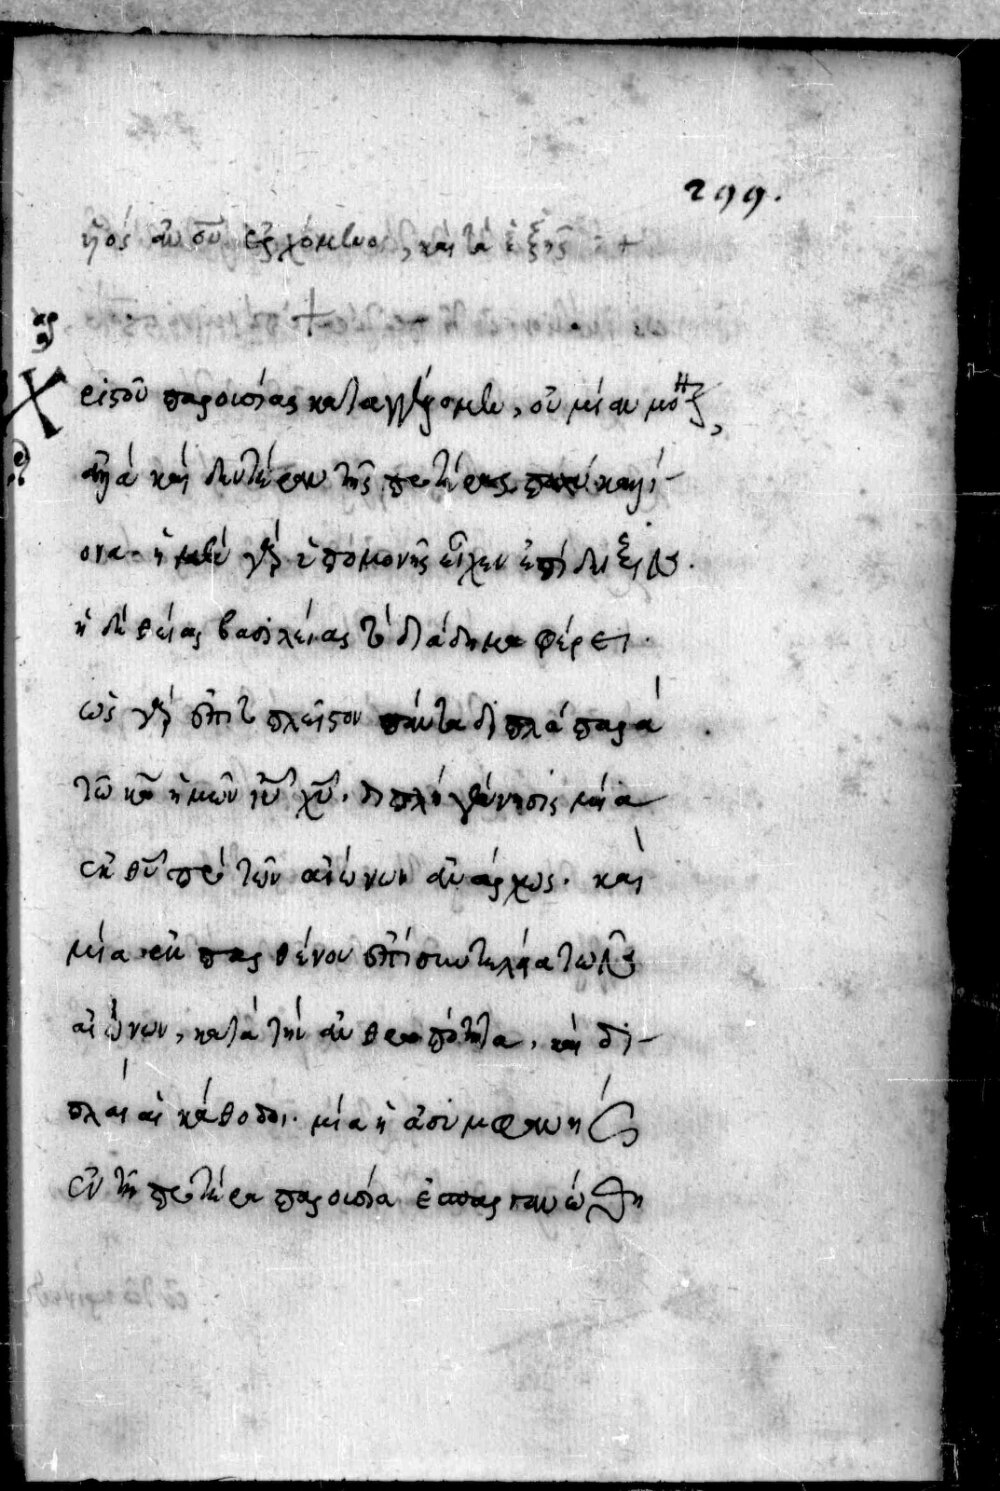 299.
ἱὸς ἀν͞ου ἐρχόμενος, καὶ τὰ ἑξῆς +
+
αρ
Χ
ριστοῦ παρουσίας καταγγέλλομεν, οὐ μίαν μόνην,
ἀλλὰ καὶ δευτέραν τῆς προτέρας πολὺ καλλί-
ονα. ἡ μὲν γὰρ ὑπομονῆς εἶχεν ἐπίδειξιν.
ἡ δὲ θείας βασιλείας τὸ διάδημα φέρει.
ὡς γὰρ ἐπιτοπλεῖστον πάντα διπλᾶ παρὰ
τῶ κ͞ω ἡμῶν ἰ͞υ χ͞υ. διπλῆ γέννησις μία
ἐκ θ͞υ πρὸ τῶν αἰώνων ἀνάρχως. καὶ
μία ἐκ παρθένου ἐπὶ συντελεία τῶν
αἰώνων, κατὰ τὴν ἀνθρωπότητα. καὶ δι-
πλαῖ αἱ κάθοδοι. μία ἡ ἀσυμφανὴς
ἐν τῆ προτέρα παρουσία ἐσπαργανώθη